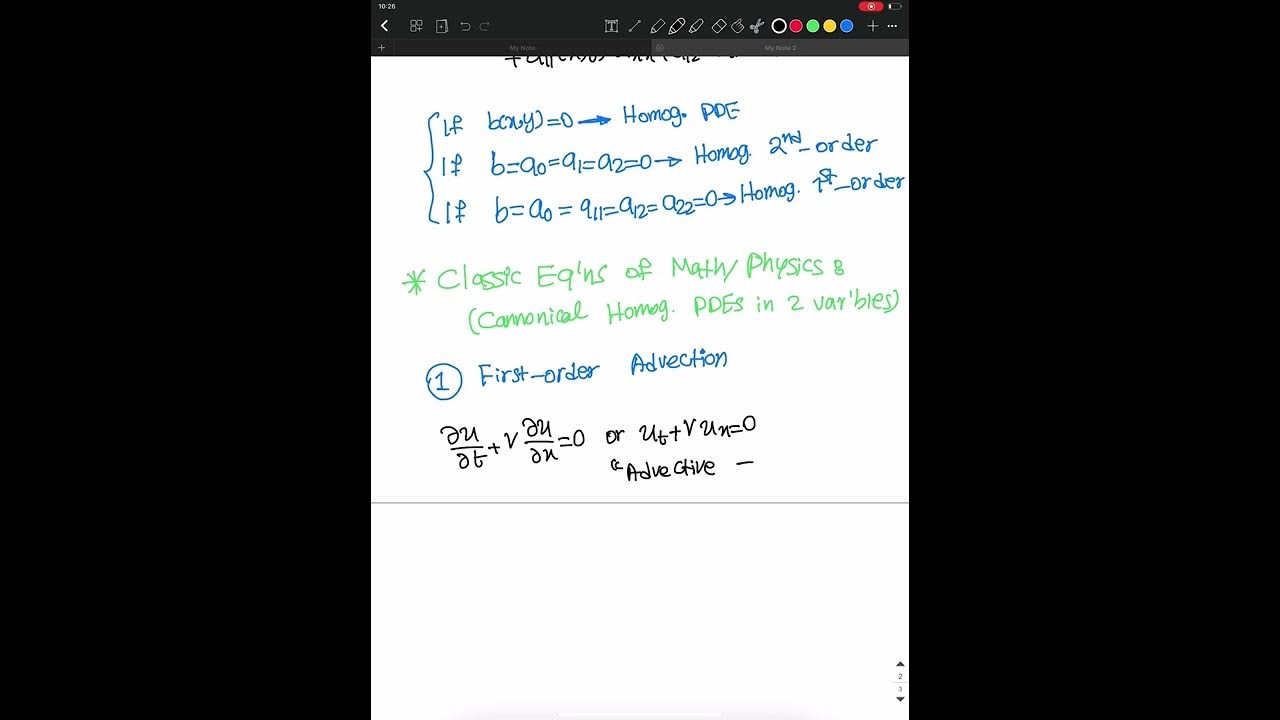 10:26
My Note
My Note 2
If b(x,y)=0 → Homog. PDE
If b=a₀=a₁=a₂=0 → Homog. 2nd-order
If b=a₀=a₁₁=a₁₂=a₂₂=0 → Homog. 1st-order
* Classic Eq'ns of Math/Physics :
(Cannonical Homog. PDEs in 2 var'bles)
① First-order Advection
∂u/∂t + V ∂u/∂x = 0 or uₜ+V uₓ=0
"Advective –
2
3